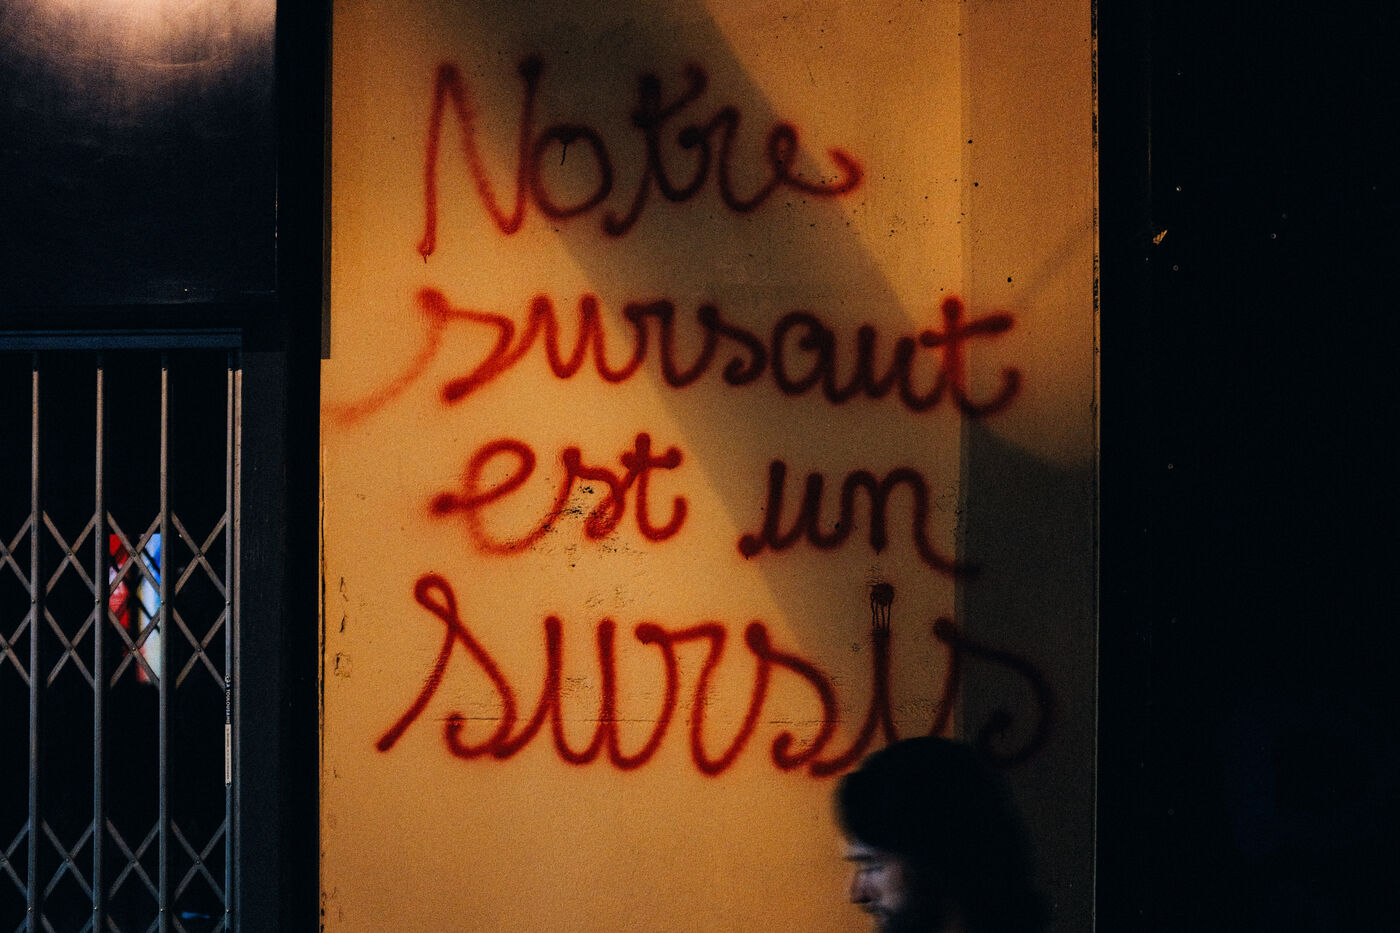 Notre
sursaut
est un
sursis